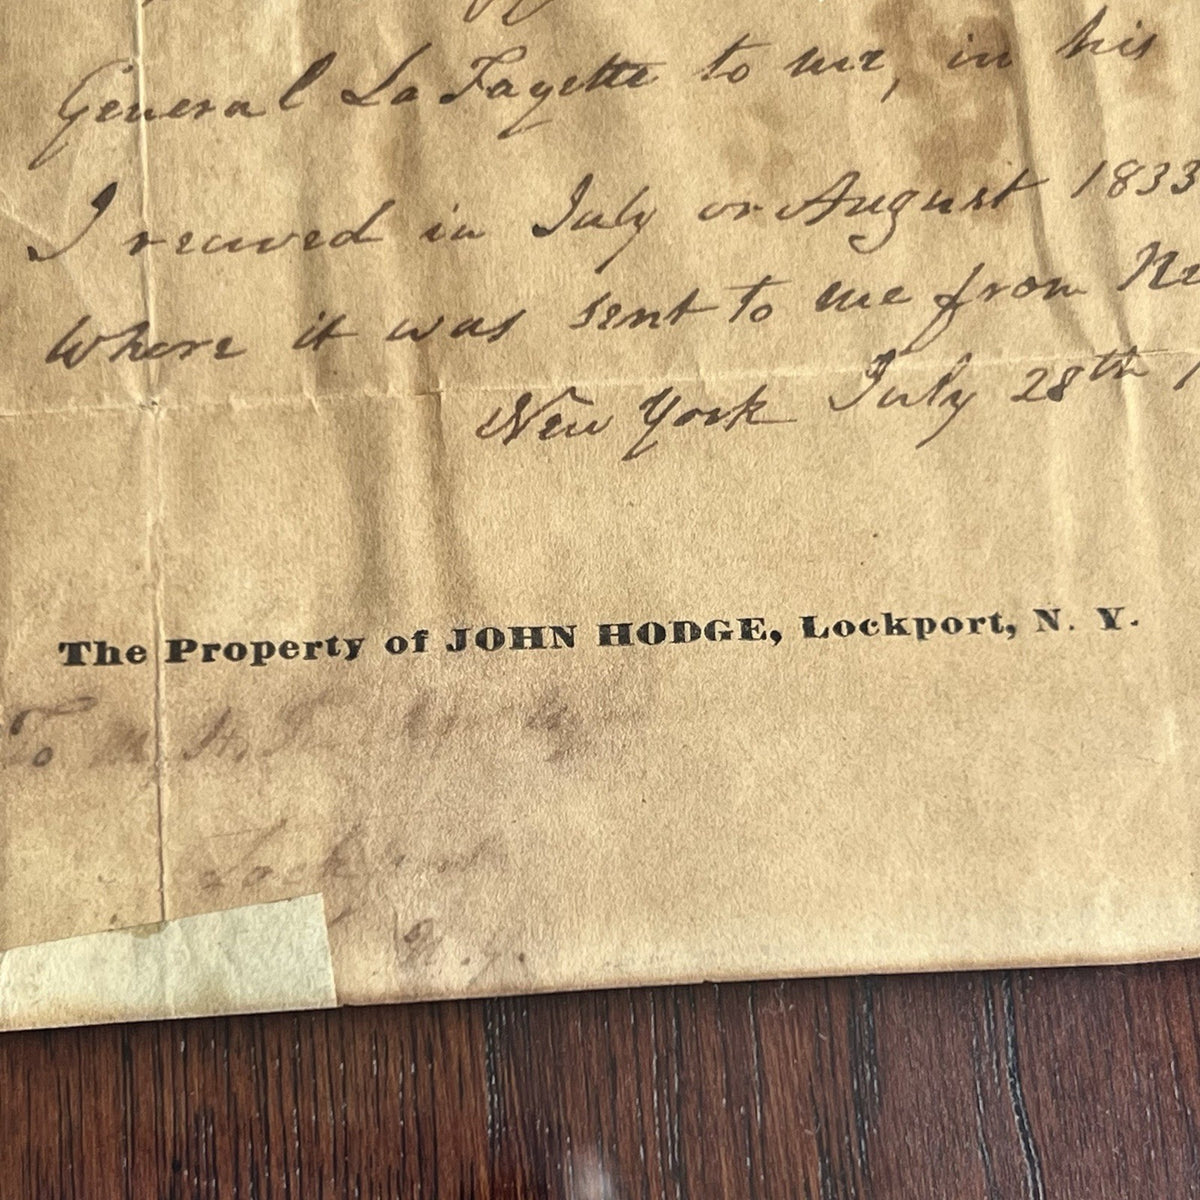 General La Fayette to me, in his
I received in July or August 1833
where it was sent to me from
New York July 28th
The Property of JOHN HODGE, Lockport, N. Y.
To
Lockport
N.Y.